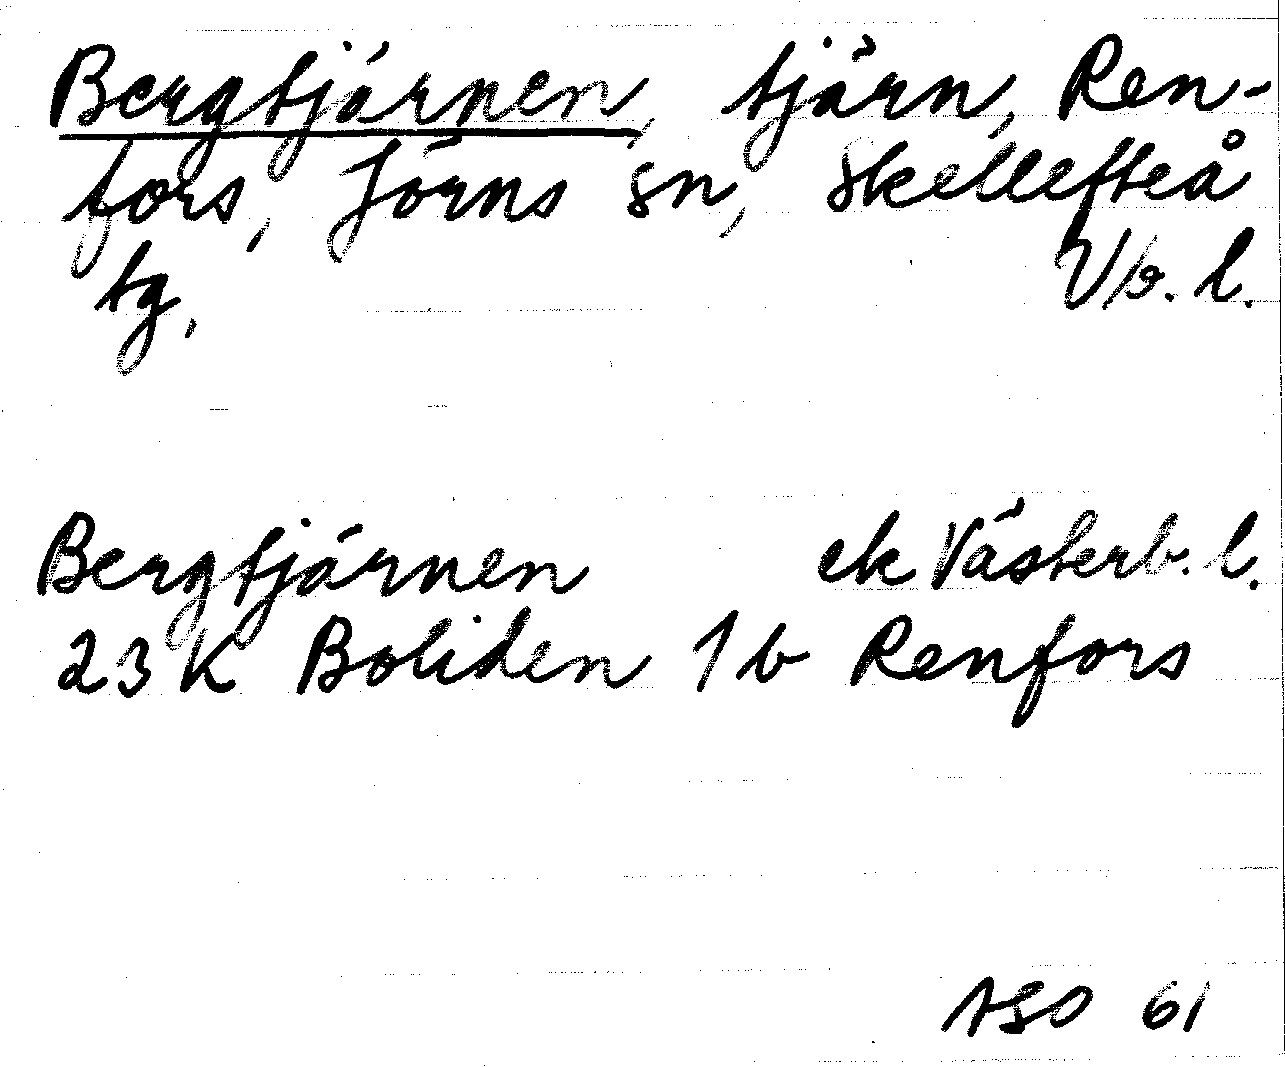 Bergtjärnen, tjärn, Ren-
fors, Jörns sn, Skellefteå
tg, V/b. l.
Bergtjärnen ek Västerb. l.
23 K Boliden 1 b Renfors
ASO 61